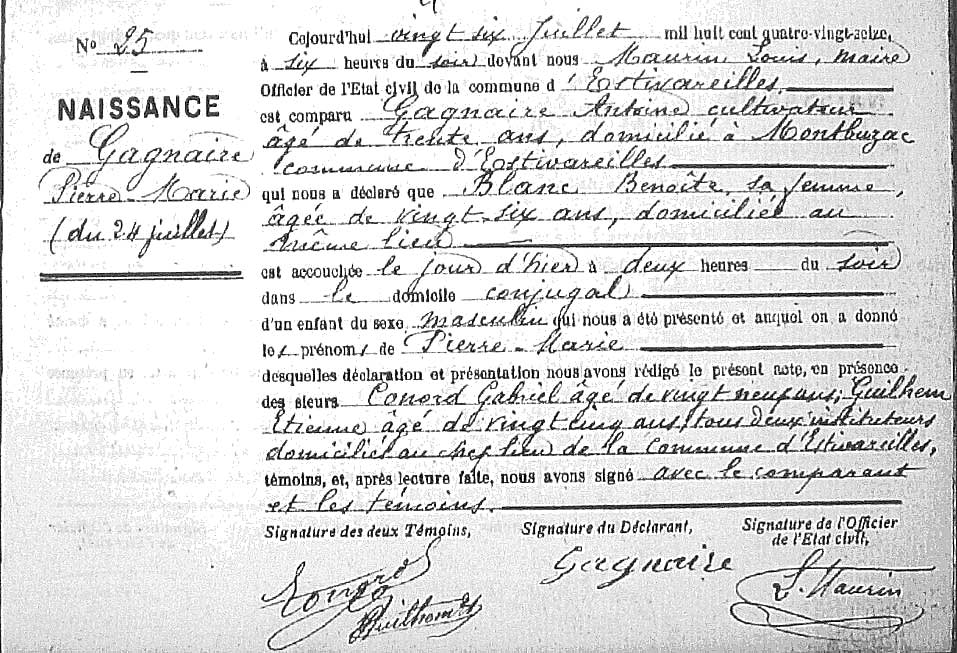 N° 25
NAISSANCE
de Gagnaire
Pierre-Marie
(du 24 juillet)
Cejourd'hui vingt six juillet mil huit cent quatre-vingt-seize,
à six heures du soir devant nous Maurin, Louis, maire
Officier de l'Etat civil de la commune d'Estivareilles
est comparu Gagnaire Antoine cultivateur
âgé de trente ans, domicilié à Montbuzac
commune d'Estivareilles
qui nous a déclaré que Blanc Benoîte, sa femme,
âgée de vingt-six ans, domiciliée au
même lieu
est accouchée le jour d'hier à deux heures du soir
dans le domicile conjugal
d'un enfant du sexe masculin qui nous a été présenté et auquel on a donné
les prénoms de Pierre-Marie
desquelles déclaration et présentation nous avons rédigé le présent acte, en présence
des sieurs Conord Gabriel âgé de vingt neuf ans; Guilhem
Etienne âgé de vingt cinq ans, tous deux instituteurs
domiciliés au chef lieu de la commune d'Estivareilles,
témoins, et, après lecture faite, nous avons signé avec le comparant
et les témoins.
Signature des deux Témoins,
Signature du Déclarant,
Signature de l'Officier
de l'Etat civil,
Conord
Guilhem Et
Gagnaire
L. Maurin